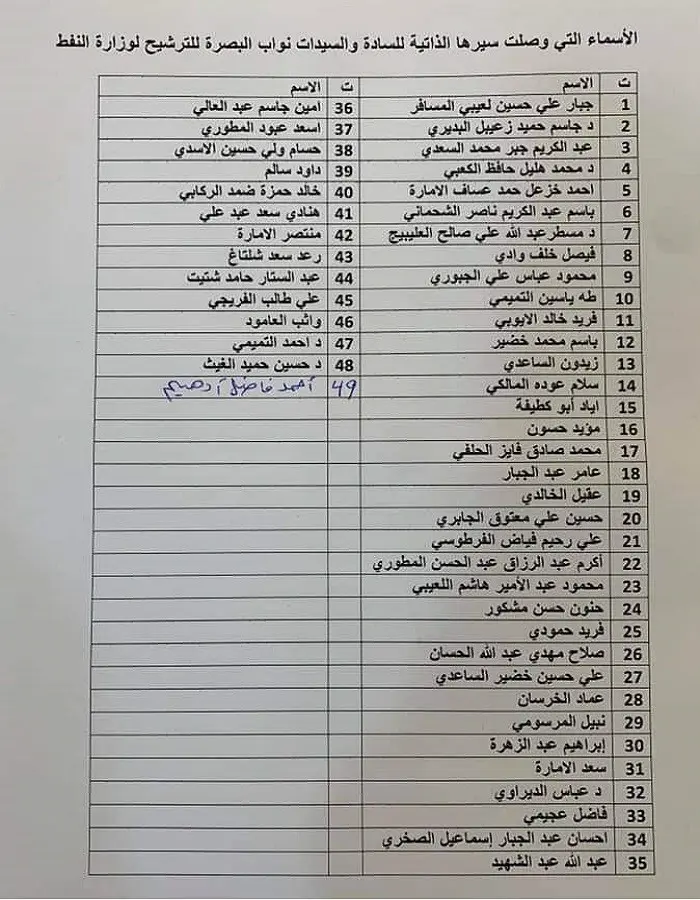 الأسماء التي وصلت سيرها الذاتية للسادة والسيدات نواب البصرة للترشيح لوزارة النفط
ت الاسم
1 جبار علي حسين لعيبي المسافر
2 د جاسم حميد زعيبل البديري
3 عبد الكريم جبر محمد السعدي
4 د محمد هليل حافظ الكعبي
5 احمد خزعل حمد عساف الامارة
6 باسم عبد الكريم ناصر الشحماني
7 د مسطرعبد الله علي صالح العليبيج
8 فيصل خلف وادي
9 محمود عباس علي الجبوري
10 طه ياسين التميمي
11 فريد خالد الايوبي
12 باسم محمد خضير
13 زيدون الساعدي
14 سلام عوده المالكي
15 اياد أبو كطيفة
16 مؤيد حسون
17 محمد صادق فايز الحلفي
18 عامر عبد الجبار
19 عقيل الخالدي
20 حسين علي معتوق الجابري
21 علي رحيم فياض الفرطوسي
22 أكرم عبد الرزاق عبد الحسن المطوري
23 محمود عبد الأمير هاشم اللعيبي
24 حنون حسن مشكور
25 فريد حمودي
26 صلاح مهدي عبد الله الحسان
27 علي حسين خضير الساعدي
28 عماد الخرسان
29 نبيل المرسومي
30 إبراهيم عبد الزهرة
31 سعد الامارة
32 د عباس الديراوي
33 فاضل عجيمي
34 احسان عبد الجبار إسماعيل الصخري
35 عبد الله عبد الشهيد
ت الاسم
36 امين جاسم عبد العالي
37 اسعد عبود المطوري
38 حسام ولي حسين الاسدي
39 داود سالم
40 خالد حمزة ضمد الركابي
41 هنادي سعد عبد علي
42 منتصر الامارة
43 رعد سعد شلتاغ
44 عبد الستار حامد شتيت
45 علي طالب الفريجي
46 واثب العامود
47 د احمد التميمي
48 د حسين حميد الغيث
49 أحمد فاضل